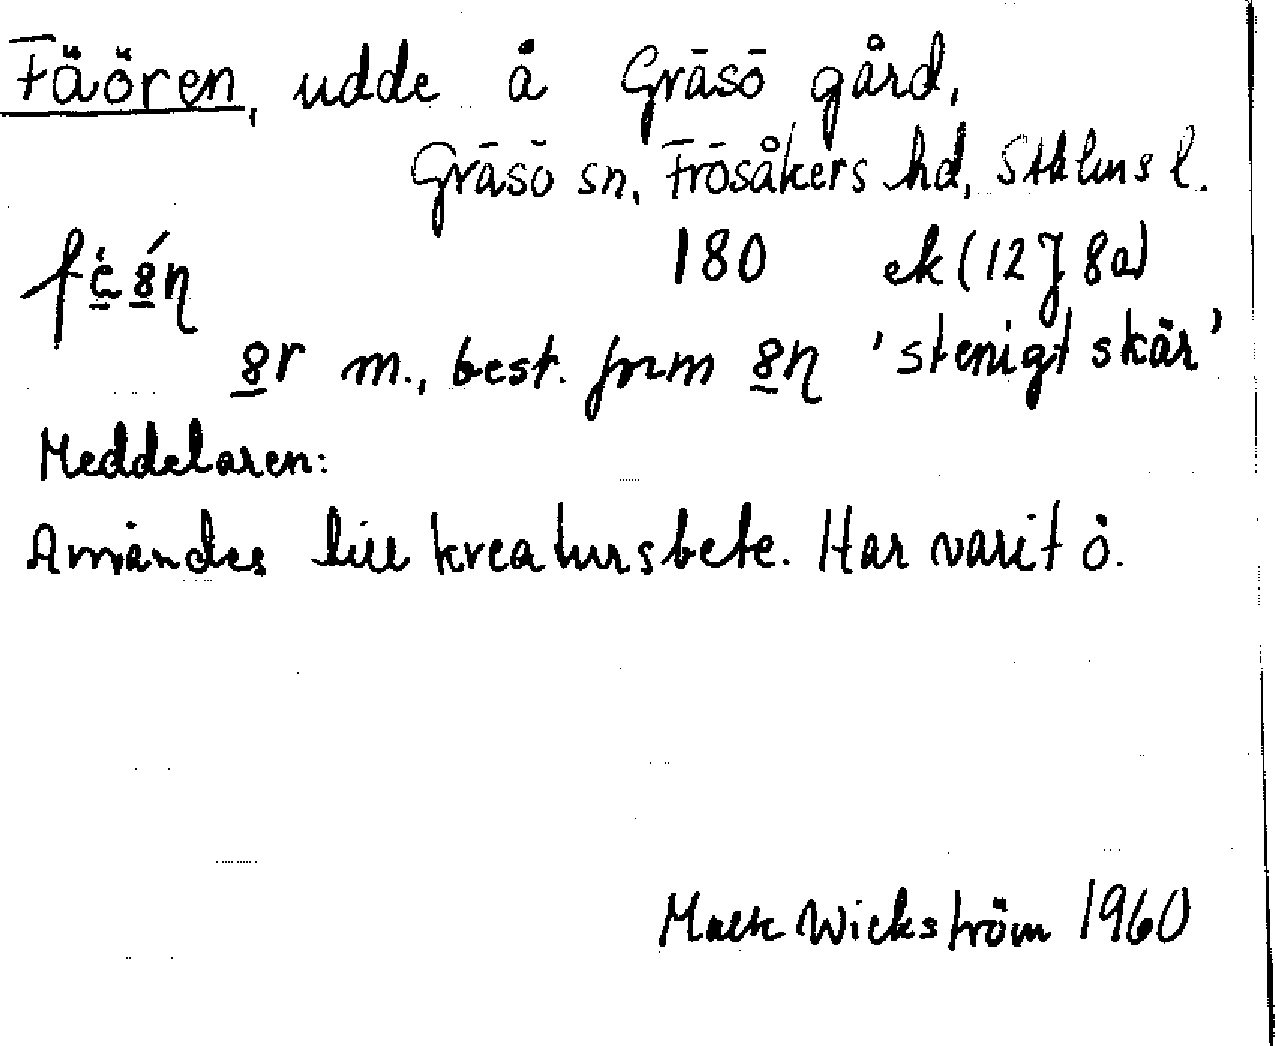 Fäören, udde å Gräsö gård,
Gräsö sn, Frösåkers hd, Sthlms l.
180 ek (12J 8a)
m., best. form 'stenigt skär'
Meddelaren:
Användes till kreatursbete. Har varit ö.
Wickström 1960